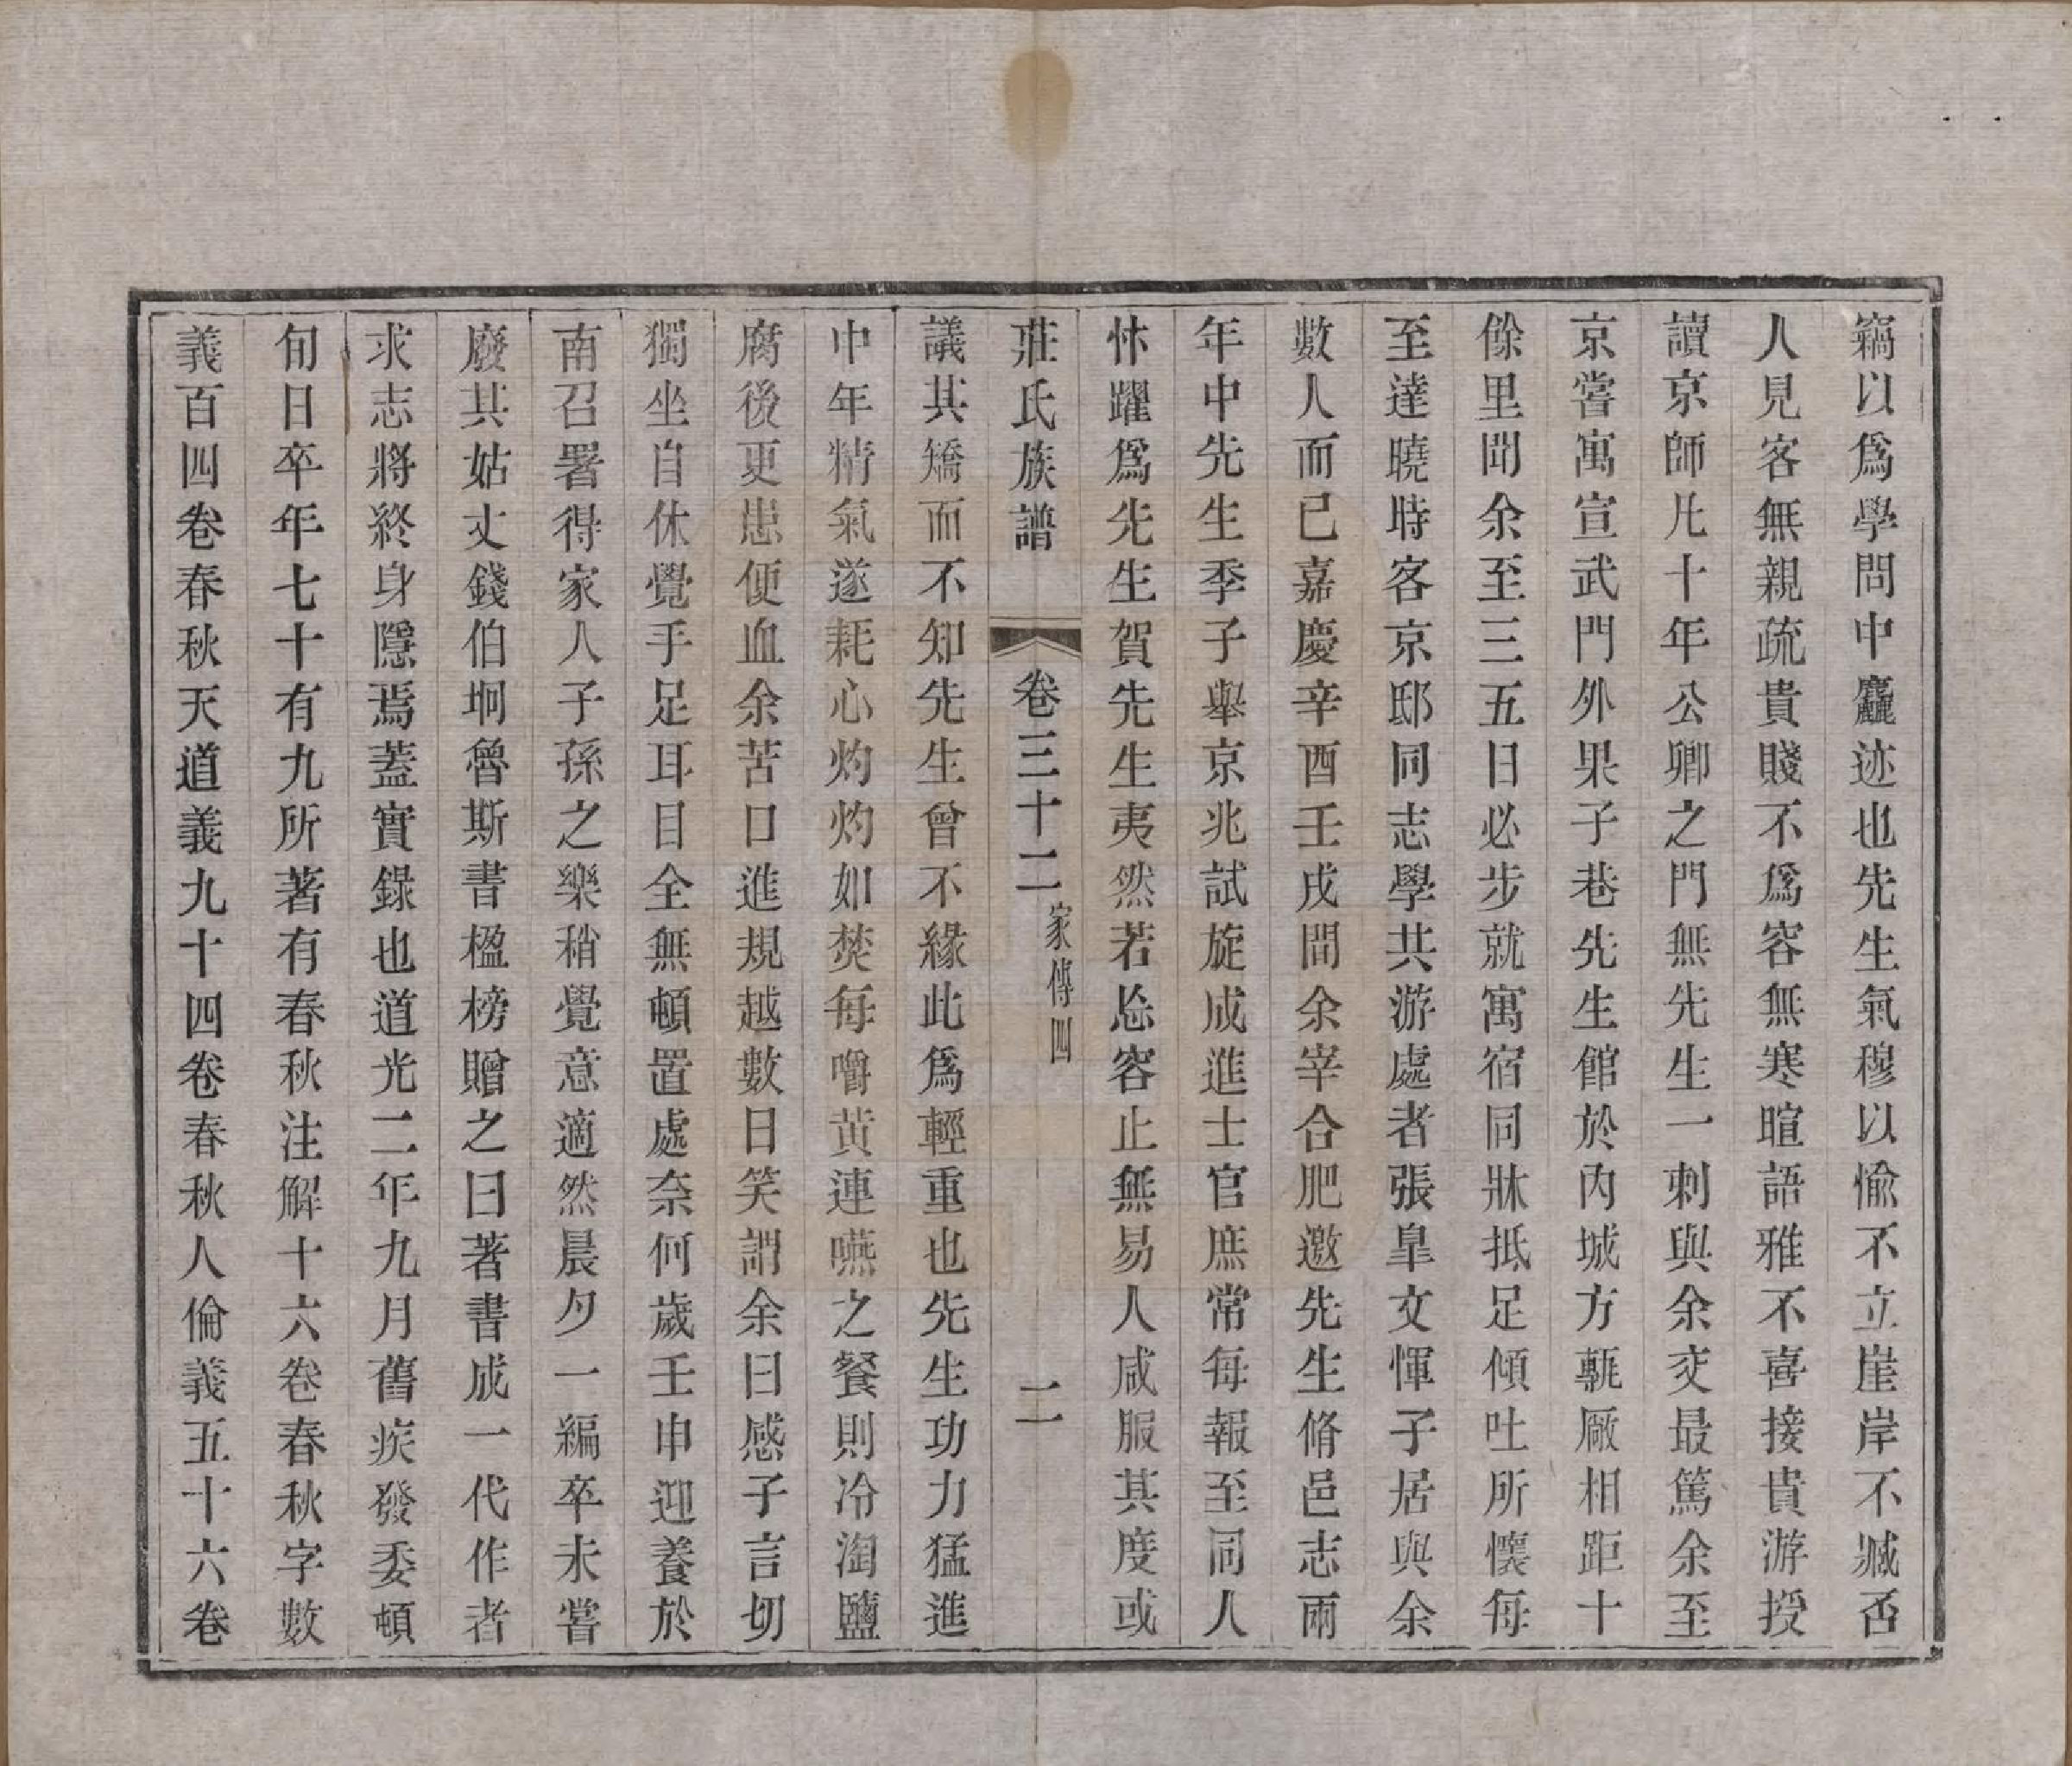 竊以爲學問中麤迹也先生氣穆以愉不立崖岸不臧否
人見客無親疏貴賤不爲容無寒暄語雅不喜接貴游授
讀京師凡十年公卿之門無先生一刺與余交最篤余至
京嘗寓宣武門外果子巷先生館於內城方甎厰相距十
餘里聞余至三五日必步就寓宿同牀抵足傾吐所懷每
至達曉時客京邸同志學共游處者張臯文惲子居與余
數人而已嘉慶辛酉壬戌間余宰合肥邀先生脩邑志兩
年中先生季子舉京兆試旋成進士官庶常每報至同人
忭躍爲先生賀先生夷然若忘容止無易人咸服其度或
莊氏族譜 卷三十二 家傳四 二
議其矯而不知先生曾不緣此爲輕重也先生功力猛進
中年精氣遂耗心灼灼如焚每嚼黃連嚥之餐則冷淘鹽
腐後更患便血余苦口進規越數日笑謂余曰感子言切
獨坐自休覺手足耳目全無頓置處奈何歲壬申迎養於
南召署得家人子孫之樂稍覺意適然晨夕一編卒未嘗
廢其姑丈錢伯坰魯斯書楹榜贈之曰著書成一代作者
求志將終身隱焉蓋實錄也道光二年九月舊疾發委頓
旬日卒年七十有九所著有春秋注解十六卷春秋字數
義百四卷春秋天道義九十四卷春秋人倫義五十六卷